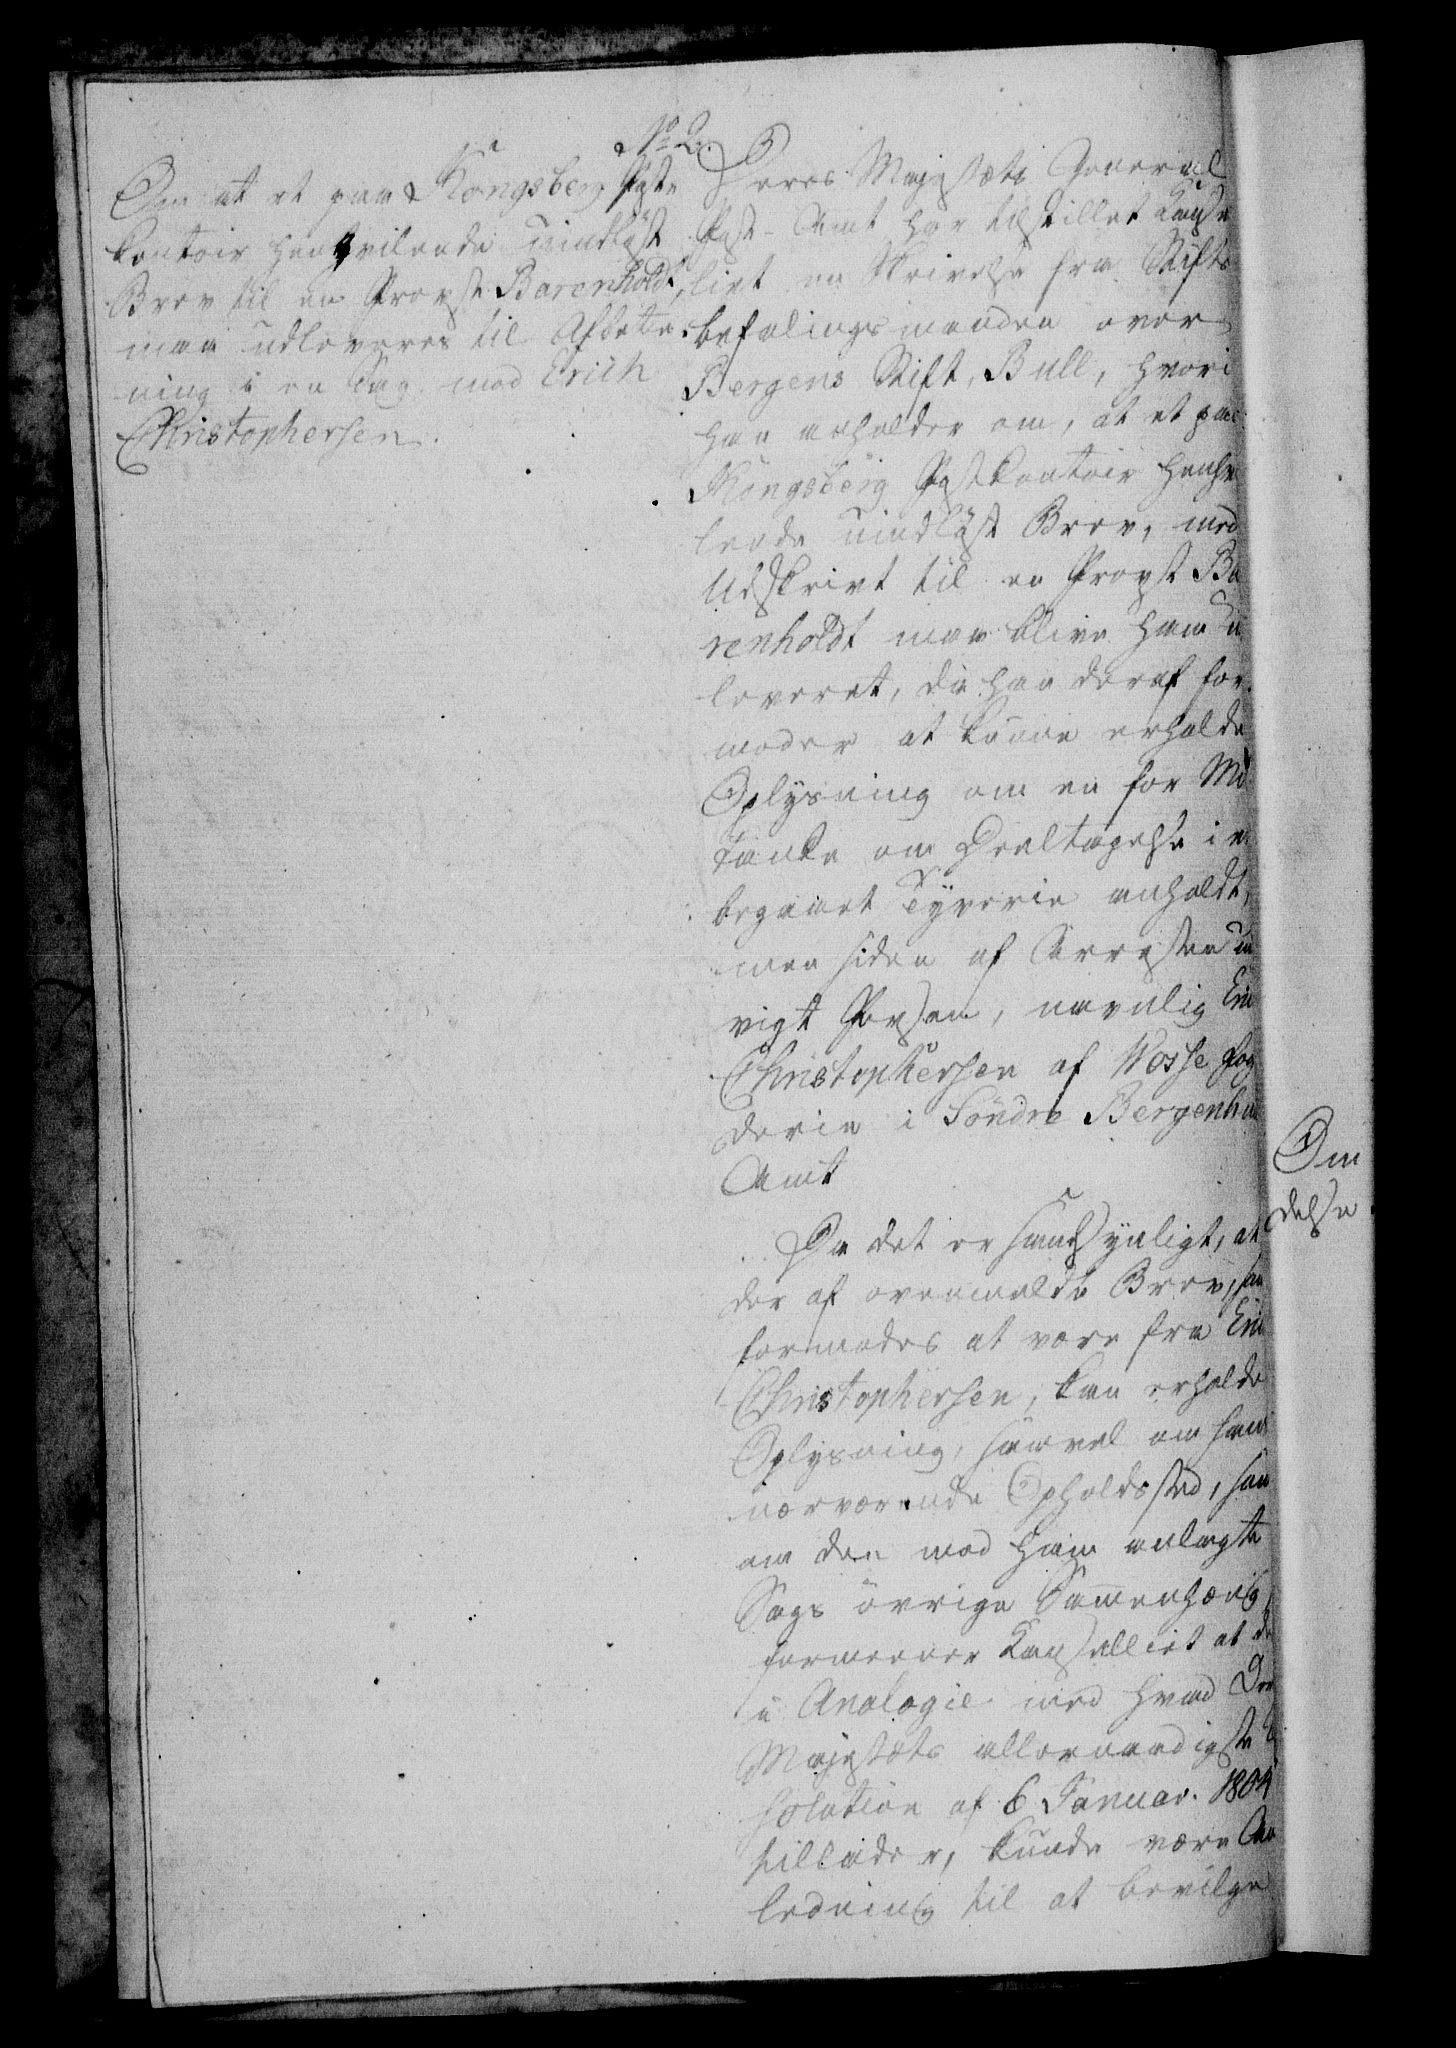 No 2.
Om at et paa Kongsberg Post
Contoir henhvilende uindløst
Brev til en Provst Barenholdt,
maa udleveres til Afbetie-
ning i en Sag mod Erich
Christophersen.
Deres Majestæts General
Post-Amt har tilstillet Cancel
liet en Skrivelse fra Stifts
befalingsmanden over
Bergens Stift, Bull, hvori
han anholder om, at et paa
Kongsberg Postkontoir henhvi
lende uindløst Brev, med
Udskrivt til en Provst Ba
renholdt maa blive ham u
leveret, da han deraf for
moder at kunne erholde
Oplysning om en for Mis
tanke om Deeltagelse i e
begaaet Tyverie anholdt,
men siden af Arresten un
vigt Person, navnlig Eric
Christophersen af Vosse Fog
derie i Søndre Bergenhu
Amt
Da det er sandsynligt, at
der af ovenmeldte Brev, som
formodes at være fra Eric
Christophersen, kan erholde
Oplysning, saavel om hans
nærværende Opholdssted, som
om den mod ham anlagte
Sags øvrige Sammenhæng
formeener Cancelliet at de
i Analogie med hvad Der
Majestæts allernaadigste Re
solution af 6 Januar. 1804
tillader, kunde være An
ledning til at bevilge
Om
delse